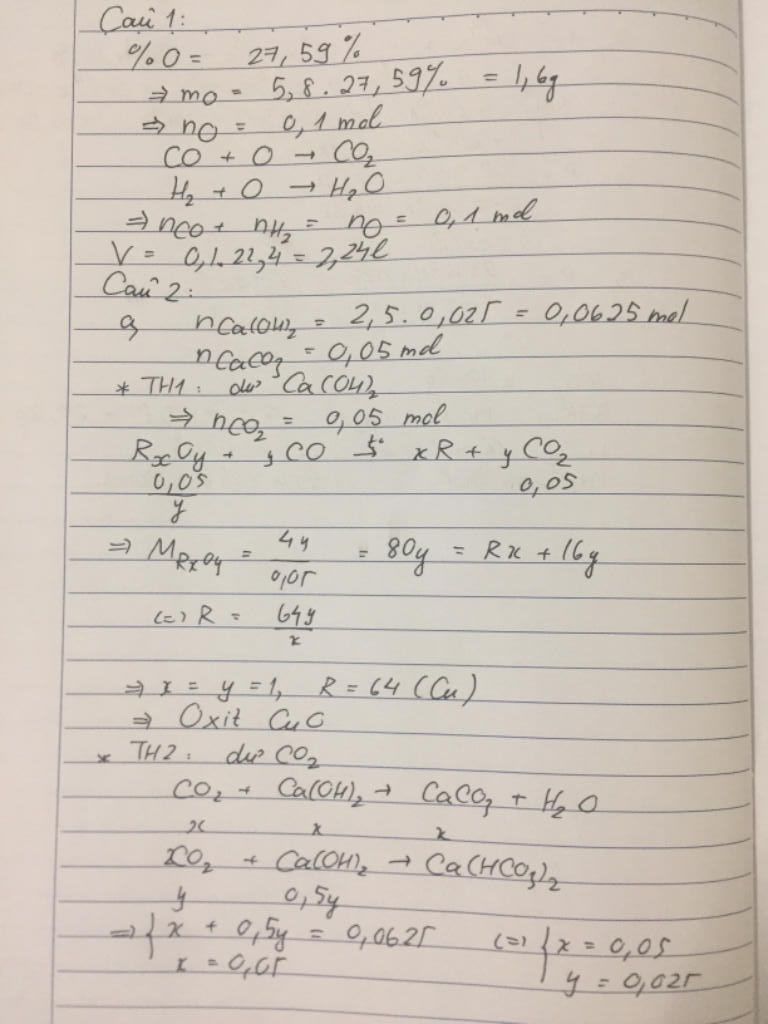 Câu 1:
%O = 27,59%
⇒ mO = 5,8 . 27,59% = 1,6g
⇒ nO = 0,1 mol
CO + O → CO₂
H₂ + O → H₂O
⇒ nCO + nH₂ = nO = 0,1 mol
V = 0,1.22,4 = 2,24l
Câu 2:
a, nCa(OH)₂ = 2,5 . 0,025 = 0,0625 mol
nCaCO₃ = 0,05 mol
* TH1: dư Ca(OH)₂
⇒ nCO₂ = 0,05 mol
RxOy + yCO t°→ xR + yCO₂
0,05/y 0,05
⇒ MRxOy = 4y/0,05 = 80y = Rx + 16y
(=) R = 64y/x
⇒ x = y = 1, R = 64 (Cu)
⇒ Oxit CuO
* TH2: dư CO₂
CO₂ + Ca(OH)₂ → CaCO₃ + H₂O
x x x
2CO₂ + Ca(OH)₂ → Ca(HCO₃)₂
y 0,5y
⇒ { x + 0,5y = 0,0625 (=) { x = 0,05
x = 0,05 y = 0,025